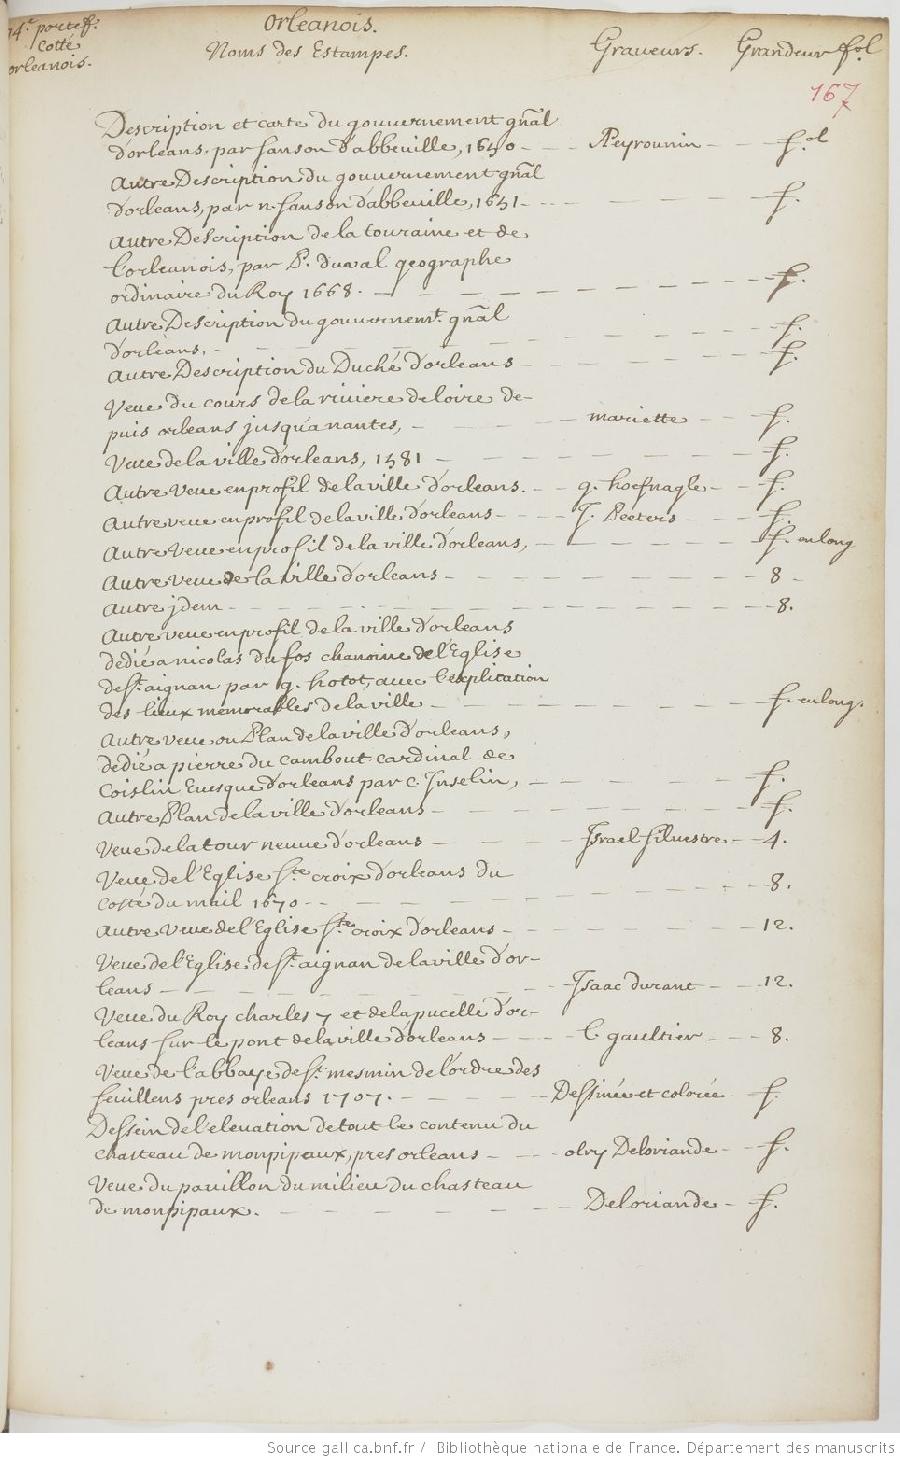 14e portef.
cotté
orleanois.
Orleanois.
Noms des Estampes. Graveurs. Grandeur fol
167
Description et carte du gouvernement gñal
d'orleans, par sanson d'abbeville, 1650 - - - Peyrounin - - f.ol
Autre Description du gouvernement gñal
d'orleans, par n. sanson d'abbeville, 1651 - - - f.
Autre Description de la touraine et de
l'orleanois, par P. duval geographe
ordinaire du Roy 1668. - - - f.
Autre Description du gouvernemt. gñal
d'orleans. - - - f.
Autre Description du Duché d'orleans - - - f.
Veue du cours de la riviere de loire de-
puis orleans jusqu'a nantes, - - - mariette - - f.
Veue de la ville d'orleans, 1581 - - - f.
Autre veue en profil de la ville d'orleans. - - g. hoefnagle - - f.
Autre veue en profil de la ville d'orleans - - - J. Peeters - - f.
Autre veue en profil de la ville d'orleans, - - - f. en long
Autre veue de la ville d'orleans - - - 8 -
Autre jdem - - - 8.
Autre veue en profil de la ville d'orleans
dedié a nicolas du fos chanoine de l'Eglise
de St. aignan par g. hotot, avec l'explication
des lieux memorables de la ville - - - f. en long.
Autre veue ou Plan de la ville d'orleans,
dedié a pierre du cambout cardinal de
Coislin Evesque d'orleans par c. Inselin, - - - f.
Autre Plan de la ville d'orleans - - - f.
Veue de la tour neuve d'orleans - - - Israel silvestre. - - 4.
Veue de l'Eglise Ste croix d'orleans du
costé du mail 1670 - - - 8.
Autre veue de l'Eglise Ste croix d'orleans - - - 12.
Veue de l'Eglise de St. aignan de la ville d'or-
leans - - - Isaac durant - - 12.
Veue du Roy charles 7 et de la pucelle d'or-
leans sur le pont de la ville d'orleans - - - l. gaultier - - - 8.
Veue de l'abbaye de St. mesmin de l'ordre des
feuillens pres orleans 1707. - - - Dessinée et colorée f.
Dessein de l'elevation de tout le contenu du
chasteau de monpipaux, pres orleans - - - olry Deloriande - - f.
Veue du pavillon du milieu du chasteau
de monpipaux. - - - Deloriande - f.
Source gallica.bnf.fr / Bibliothèque nationale de France. Département des manuscrits